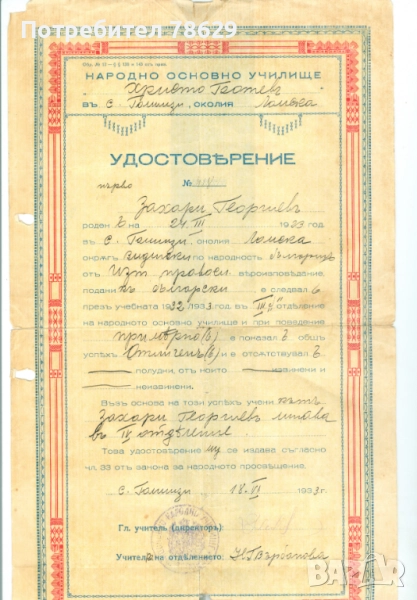 Потребител 78629
Обр. № 13 — § § 139 и 140 отъ прав.
НАРОДНО ОСНОВНО УЧИЛИЩЕ
„Христо Ботевъ“
въ с. околия Ломска
УДОСТОВѢРЕНИЕ
първо №
Захари Георгиевъ
роденъ на 24. III 19
въ с. околия Ломска
окрѫгъ Видински по народность българинъ
отъ Изт. правосл. вѣроизповѣдание,
поданикъ български е следвалъ
презъ учебната 1932/1933 год. въ III отдѣление
на народното основно училище и при поведение
примѣрно (6) е показалъ общъ
успѣхъ Отличенъ (6) и е отсѫтствувалъ
полудни, отъ които извинени и
неизвинени.
Въз основа на този успѣхъ ученикътъ
Захари Георгиевъ минава
въ IV отдѣление.
Това удостовѣрение му се издава съгласно
чл. 33 отъ закона за народното просвѣщение.
с. 18. VI 1933 г.
Гл. учитель (директоръ):
Учител на отдѣлението:
БАЗАР